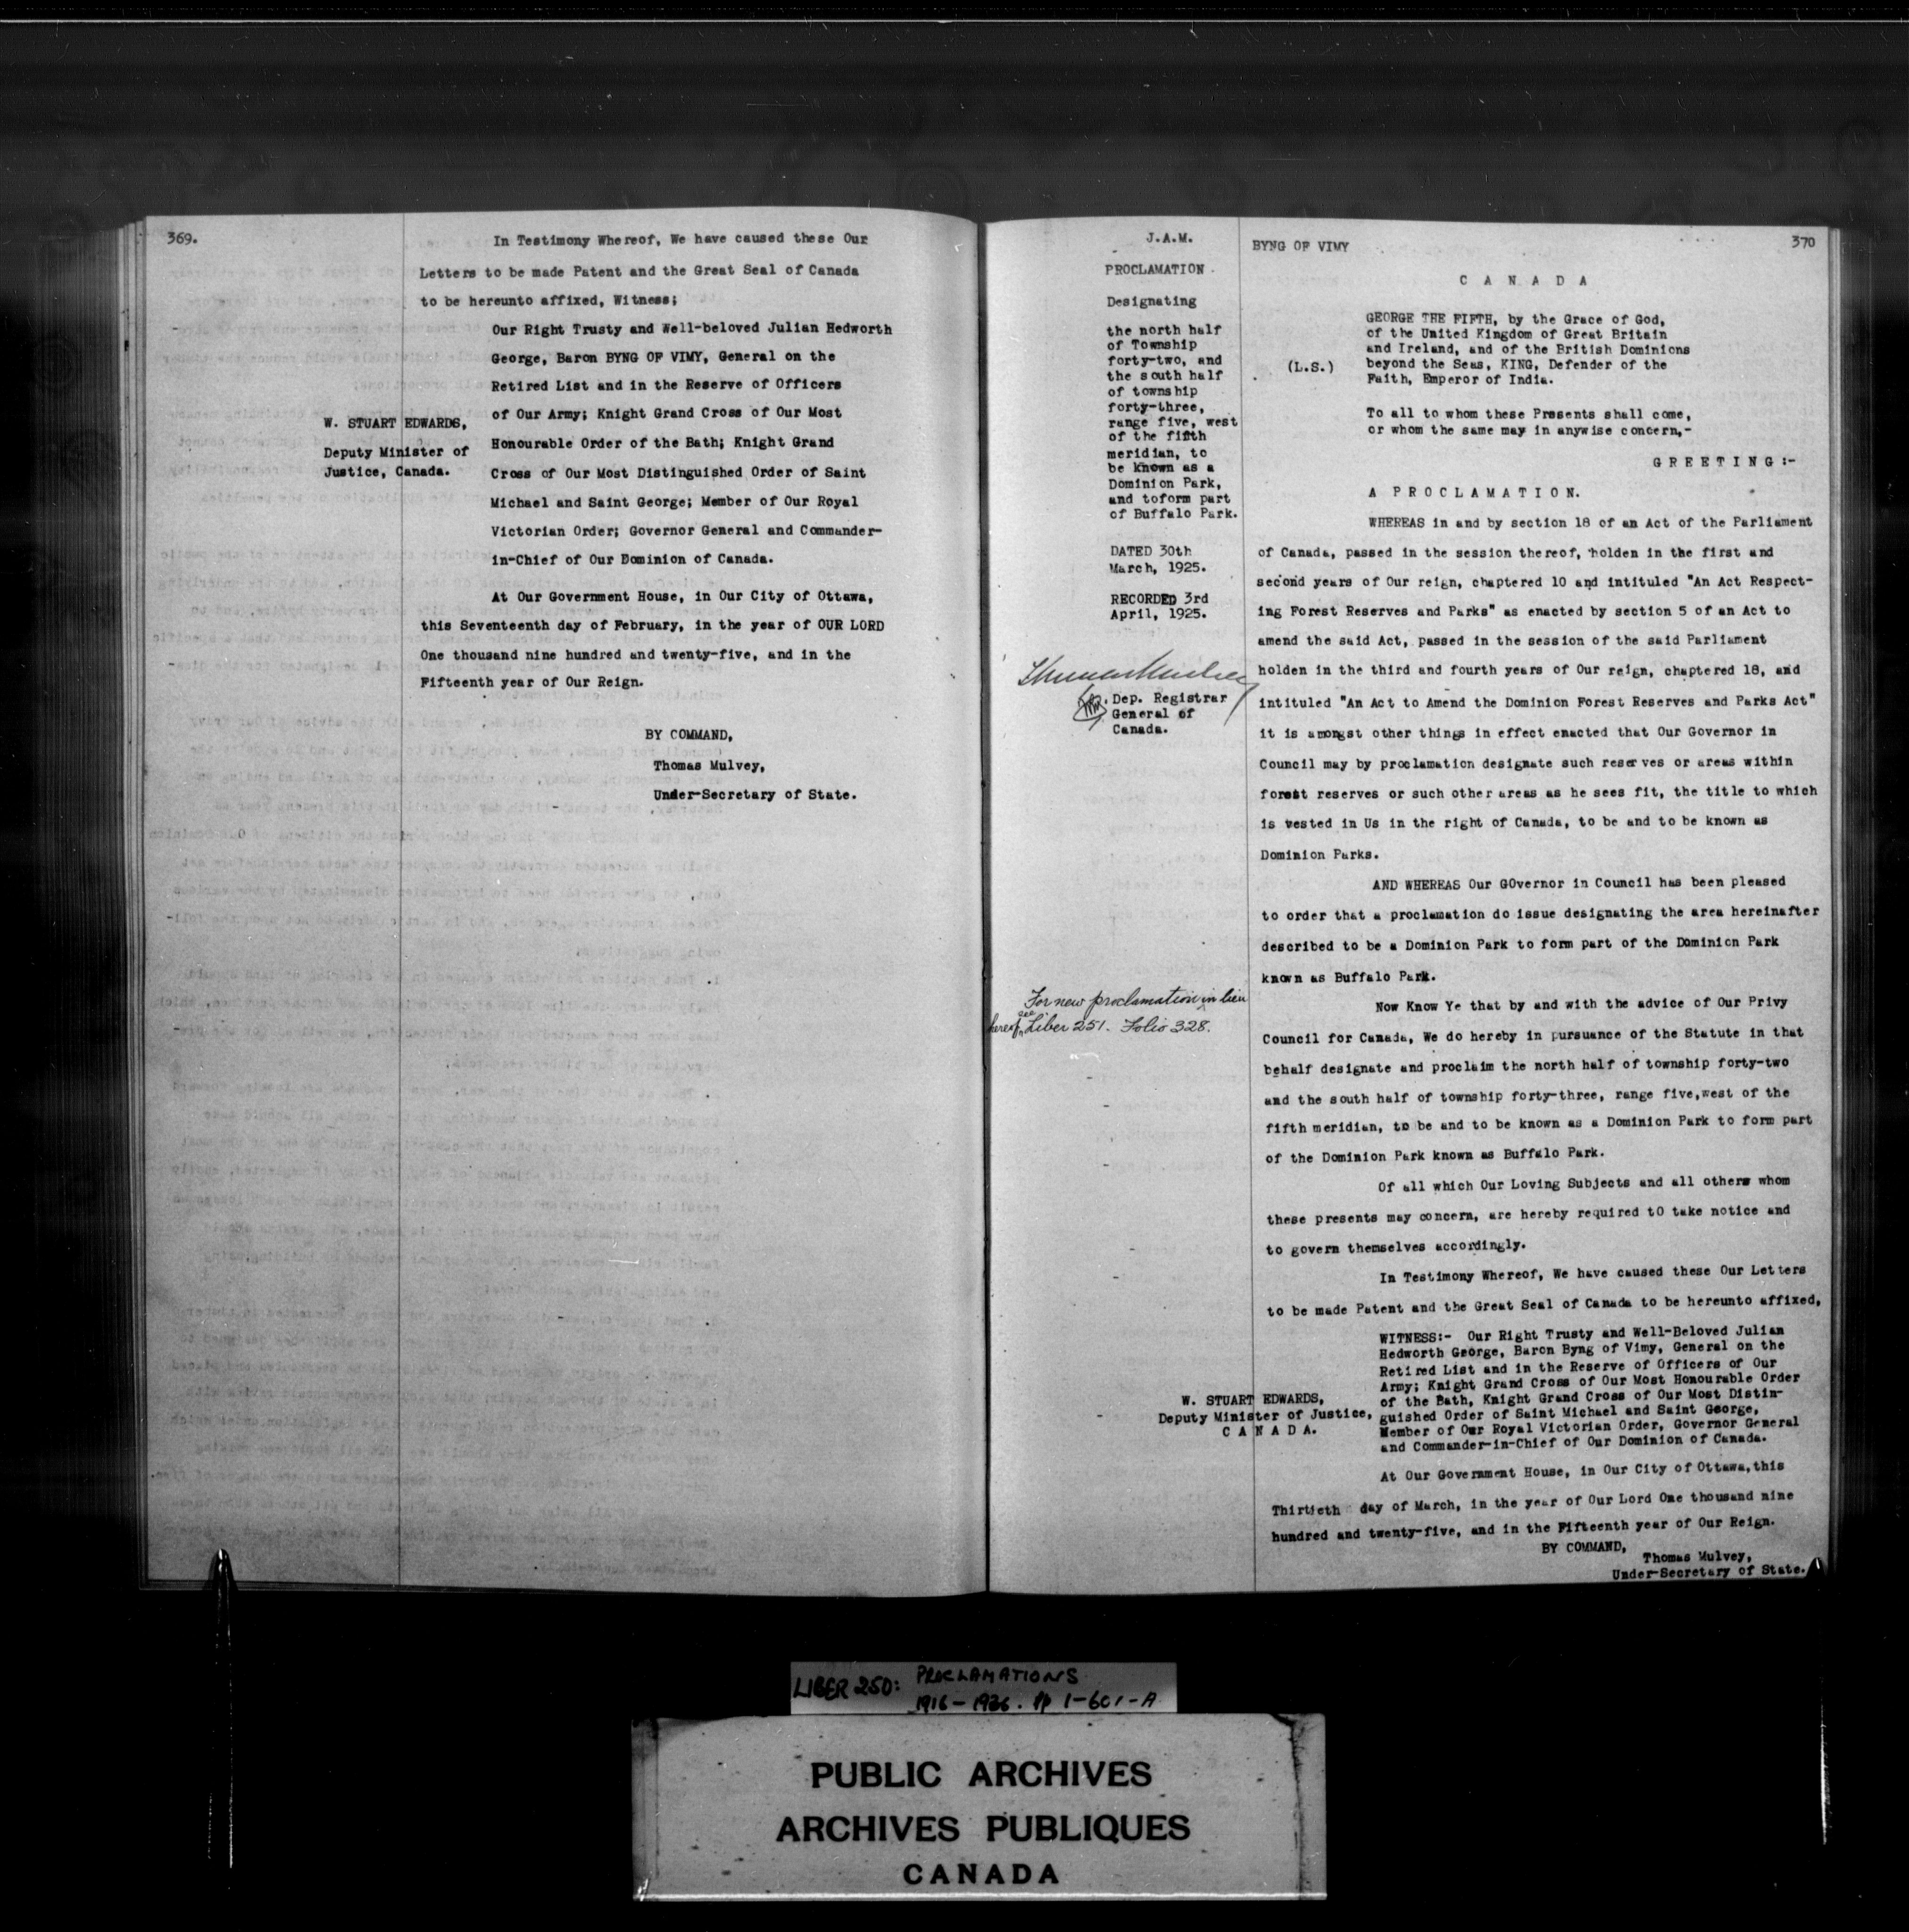 369.
In Testimony Whereof, We have caused these Our
Letters to be made Patent and the Great Seal of Canada
to be hereunto affixed, Witness;
Our Right Trusty and Well-beloved Julian Hedworth
George, Baron BYNG OF VIMY, General on the
Retired List and in the Reserve of Officers
of Our Army; Knight Grand Cross of Our Most
Honourable Order of the Bath; Knight Grand
Cross of Our Most Distinguished Order of Saint
Michael and Saint George; Member of Our Royal
Victorian Order; Governor General and Commander-
in-Chief of Our Dominion of Canada.
W. STUART EDWARDS,
Deputy Minister of
Justice, Canada.
At Our Government House, in Our City of Ottawa,
this Seventeenth day of February, in the year of OUR LORD
One thousand nine hundred and twenty-five, and in the
Fifteenth year of Our Reign.
BY COMMAND,
Thomas Mulvey,
Under-Secretary of State.
J.A.M.
PROCLAMATION
Designating
the north half
of Township
forty-two, and
the south half
of township
forty-three,
range five, west
of the fifth
meridian, to
be known as a
Dominion Park,
and toform part
of Buffalo Park.
DATED 30th
March, 1925.
RECORDED 3rd
April, 1925.
Thomas Mulvey
Dep. Registrar
General of
Canada.
For new proclamation in lieu
hereof see Liber 251. Folio 328.
BYNG OF VIMY
370
C A N A D A
GEORGE THE FIFTH, by the Grace of God,
of the United Kingdom of Great Britain
and Ireland, and of the British Dominions
(L.S.) beyond the Seas, KING, Defender of the
Faith, Emperor of India.
To all to whom these Presents shall come,
or whom the same may in anywise concern,-
G R E E T I N G :-
A P R O C L A M A T I O N.
WHEREAS in and by section 18 of an Act of the Parliament
of Canada, passed in the session thereof, holden in the first and
second years of Our reign, chaptered 10 and intituled "An Act Respect-
ing Forest Reserves and Parks" as enacted by section 5 of an Act to
amend the said Act, passed in the session of the said Parliament
holden in the third and fourth years of Our reign, chaptered 18, and
intituled "An Act to Amend the Dominion Forest Reserves and Parks Act"
it is amongst other things in effect enacted that Our Governor in
Council may by proclamation designate such reserves or areas within
forest reserves or such other areas as he sees fit, the title to which
is vested in Us in the right of Canada, to be and to be known as
Dominion Parks.
AND WHEREAS Our GOvernor in Council has been pleased
to order that a proclamation do issue designating the area hereinafter
described to be a Dominion Park to form part of the Dominion Park
known as Buffalo Park.
Now Know Ye that by and with the advice of Our Privy
Council for Canada, We do hereby in pursuance of the Statute in that
behalf designate and proclaim the north half of township forty-two
and the south half of township forty-three, range five,west of the
fifth meridian, to be and to be known as a Dominion Park to form part
of the Dominion Park known as Buffalo Park.
Of all which Our Loving Subjects and all others whom
these presents may concern, are hereby required tO take notice and
to govern themselves accordingly.
In Testimony Whereof, We have caused these Our Letters
to be made Patent and the Great Seal of Canada to be hereunto affixed,
WITNESS:- Our Right Trusty and Well-Beloved Julian
Hedworth George, Baron Byng of Vimy, General on the
Retired List and in the Reserve of Officers of Our
Army; Knight Grand Cross of Our Most Honourable Order
of the Bath, Knight Grand Cross of Our Most Distin-
guished Order of Saint Michael and Saint George,
Member of Our Royal Victorian Order, Governor General
and Commander-in-Chief of Our Dominion of Canada.
W. STUART EDWARDS,
Deputy Minister of Justice,
C A N A D A.
At Our Government House, in Our City of Ottawa,this
Thirtieth day of March, in the year of Our Lord One thousand nine
hundred and twenty-five, and in the Fifteenth year of Our Reign.
BY COMMAND,
Thomas Mulvey,
Under-Secretary of State.
LIBER 250: PROCLAMATIONS
1916-1926. pp 1-601-A
PUBLIC ARCHIVES
ARCHIVES PUBLIQUES
CANADA